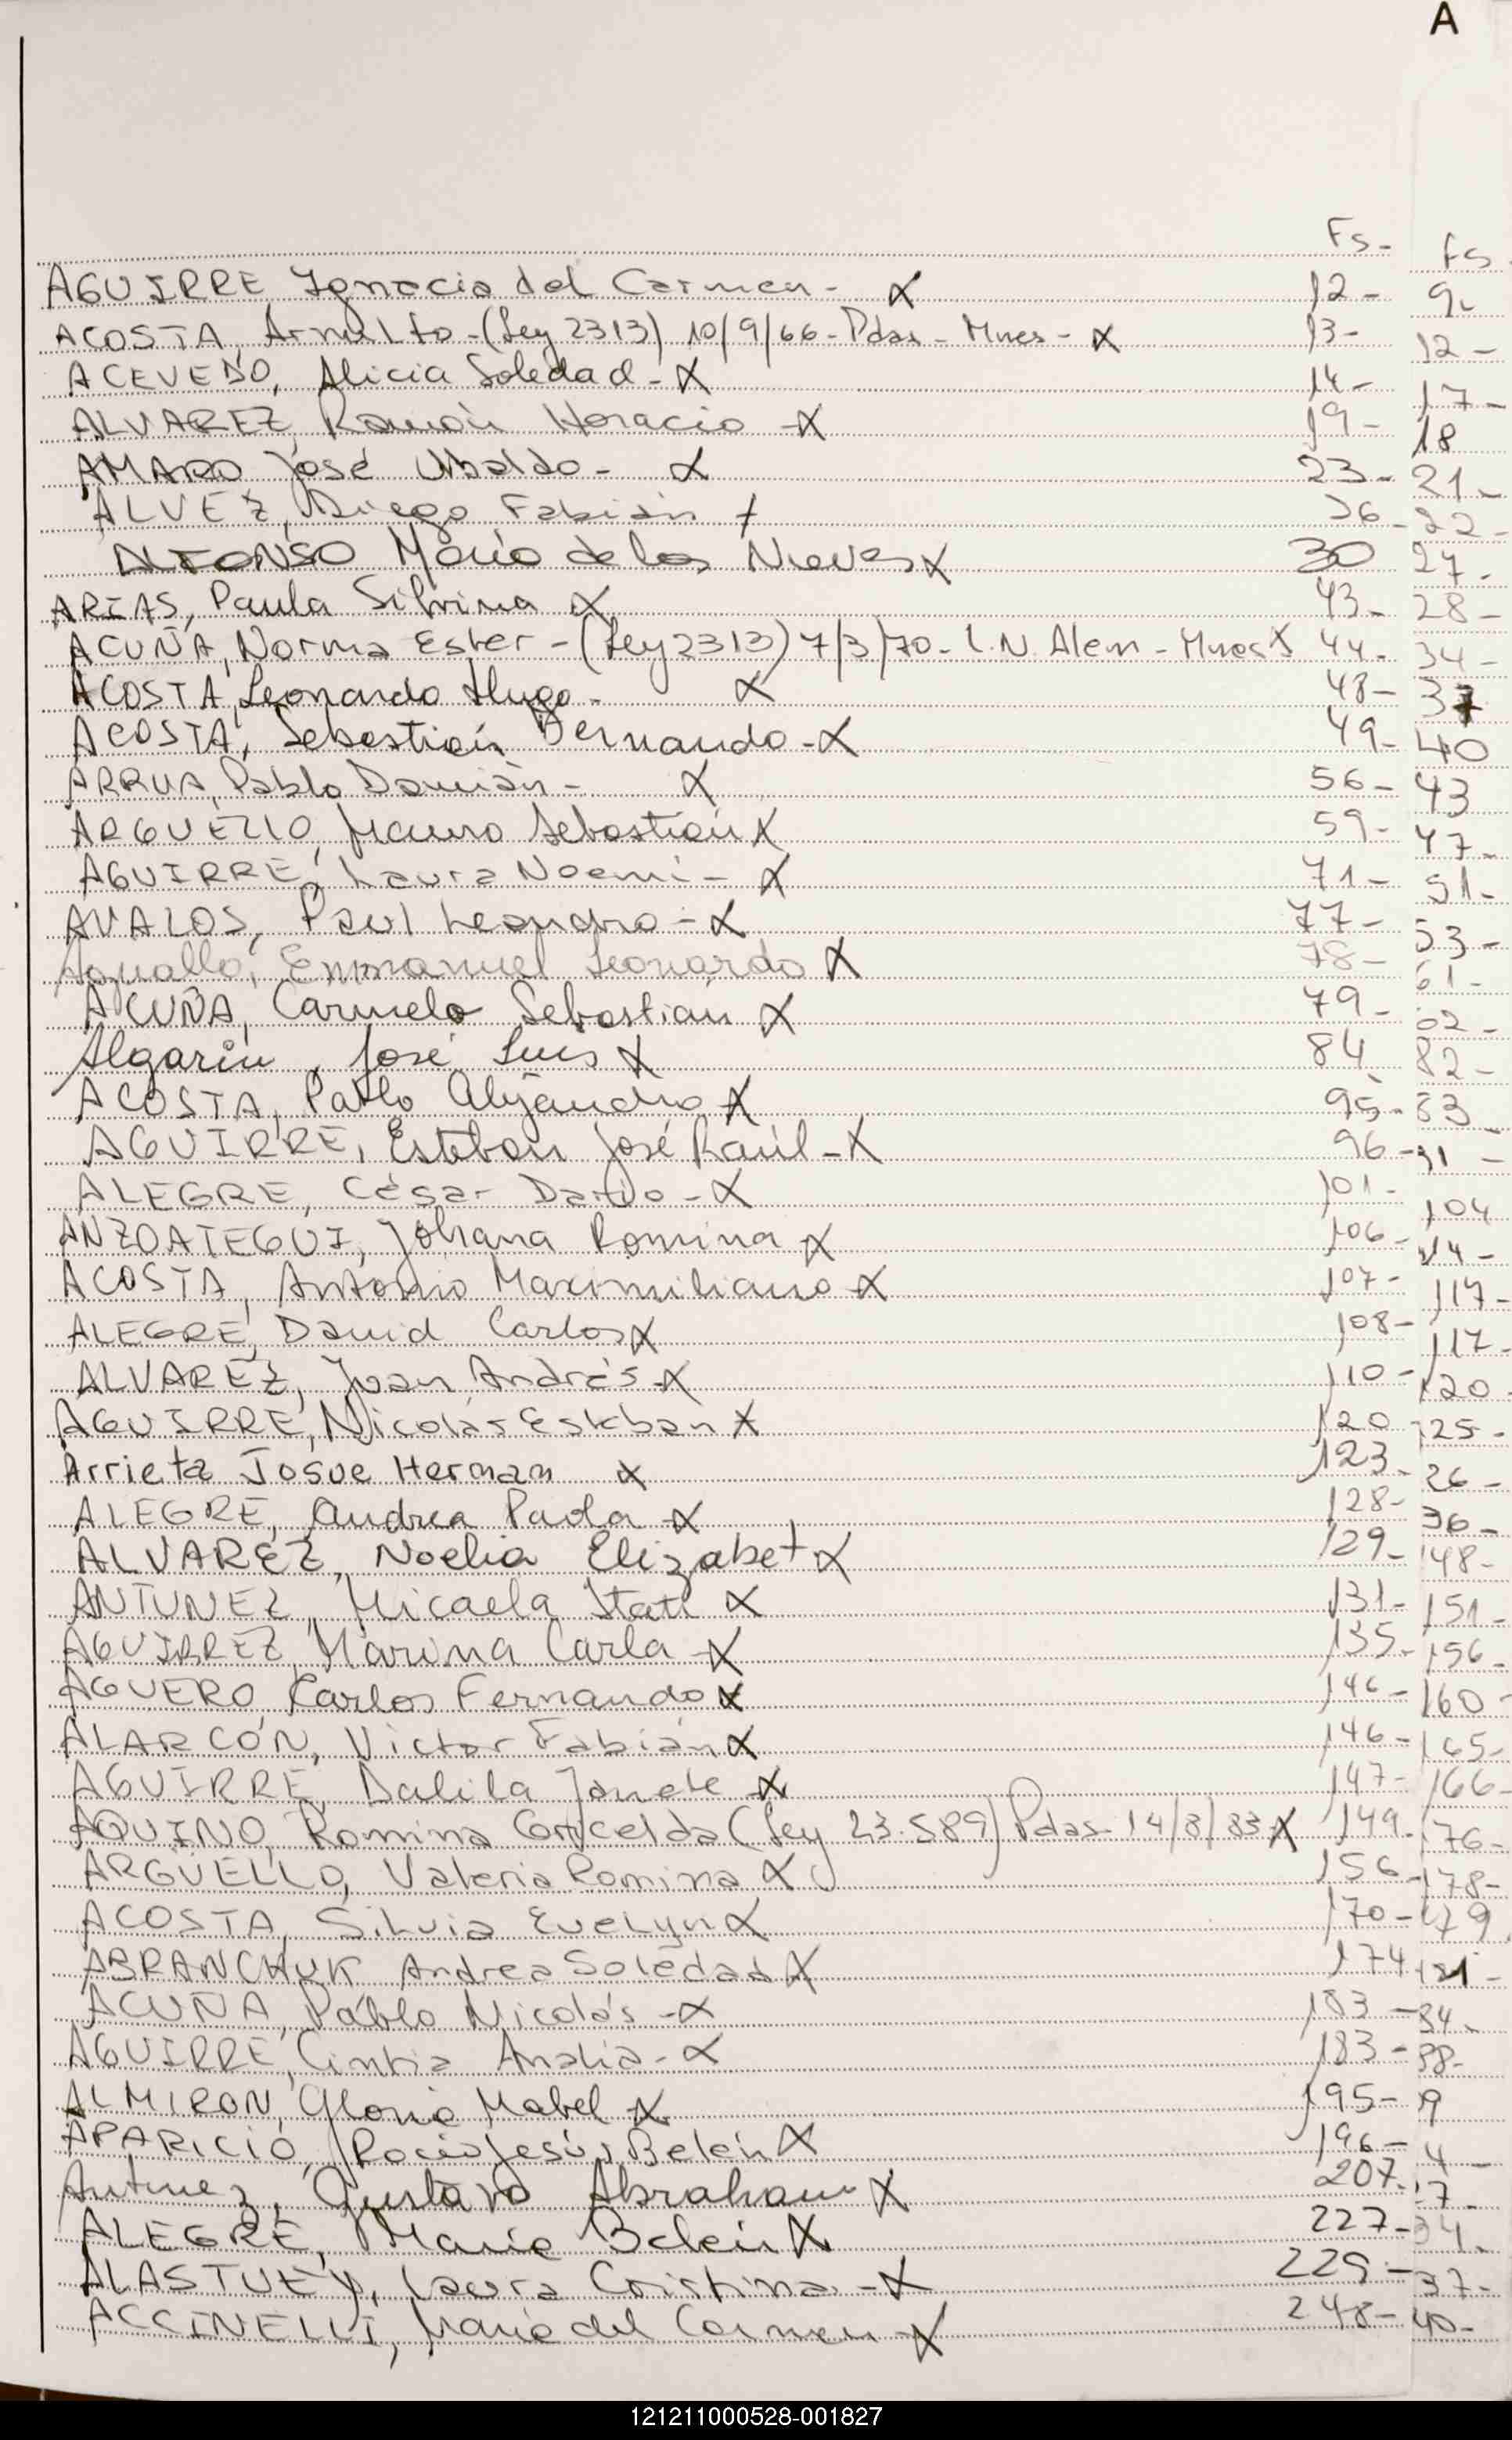 A
Fs-
Fs
AGUIRRE, Ignacio del Carmen - X 12- 9-
ACOSTA, Arnulfo - (Ley 2313) 10/9/66 - Pdas - Mnes - X 13- 12-
ACEVEDO, Alicia Soledad - X 14- 17-
ALVAREZ, Ramón Horacio - X 19- 18
AMARO José Ubaldo - X 23- 21-
ALVEZ, Diego Fabián X 26- 22-
ALFONSO María de las Nieves X 30 27-
ARIAS, Paula Silvina X 43- 28-
ACUÑA, Norma Ester - (Ley 2313) 7/3/70 - L.N. Alem - Mnes X 44- 34-
ACOSTA, Leonardo Hugo - X 48- 37
ACOSTA, Sebastián Bernando - X 49- 40
ARRUA, Pablo Damián - X 56- 43
ARGUELLO, Mauro Sebastián X 59- 47-
AGUIRRE, Laura Noemi - X 71- 51-
AVALOS, Paul Leandro - X 77- 53-
Emmanuel Leonardo X 78- 61-
ACUÑA, Carmelo Sebastián X 79- 62-
Algarin, José Luis X 84 82-
ACOSTA, Pablo Alejandro X 95- 83
AGUIRRE, Esteban José Raúl - X 96- 91-
ALEGRE, César Darío - X 101- 104
ANZOATEGUI, Johana Romina X 106- 114-
ACOSTA, Antonio Maximiliano X 107- 117-
ALEGRE, David Carlos X 108- 117-
ALVAREZ, Juan Andrés - X 110- 120-
AGUIRRE, Nicolás Esteban X 120 125-
Arrieta Josue Hernan X 123- 26-
ALEGRE, Andrea Paola X 128- 36-
ALVAREZ, Noelia Elizabet X 129- 148-
ANTUNEZ, Micaela Itatí X 131- 151-
AGUIRREZ, Marina Carla - X 135- 156-
AGUERO, Carlos Fernando X 146- 160-
ALARCÓN, Victor Fabián X 146- 165-
AGUIRRE, Dalila Janete X 147- 166-
AQUINO, Romina Gricelda (Ley 23.589) Pdas - 14/8/83 X 149- 176-
ARGÜELLO, Valeria Romina X 156- 178-
ACOSTA, Silvia Evelyn X 170- 179
ABRANCHUK Andrea Soledad X 174 181-
ACUÑA, Pablo Nicolás - X 183- 84-
AGUIRRE, Cintia Analia - X 183- 88-
ALMIRON, Gloria Mabel X 195- 9
APARICIO, Rocío Jesús Belén X 196- 4-
Antunez, Gustavo Abraham X 207- 17-
ALEGRE, María Belén X 227- 34-
ALASTUEY, Laura Cristina - X 229- 37-
ACCINELLI, María del Carmen X 248- 40-
121211000528-001827